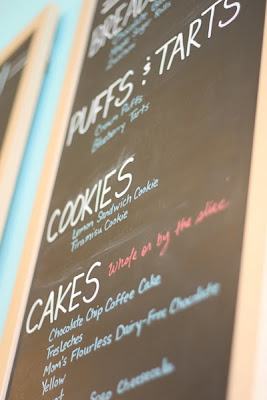 BREAD
PUFFS & TARTS
Cream Puffs
Blueberry Tarts
COOKIES
Lemon Sandwich Cookie
Tiramisu Cookie
CAKES Whole or by the slice
Chocolate Chip Coffee Cake
Tres Leches
Mom's Flourless Dairy-Free Chocolate
Yellow